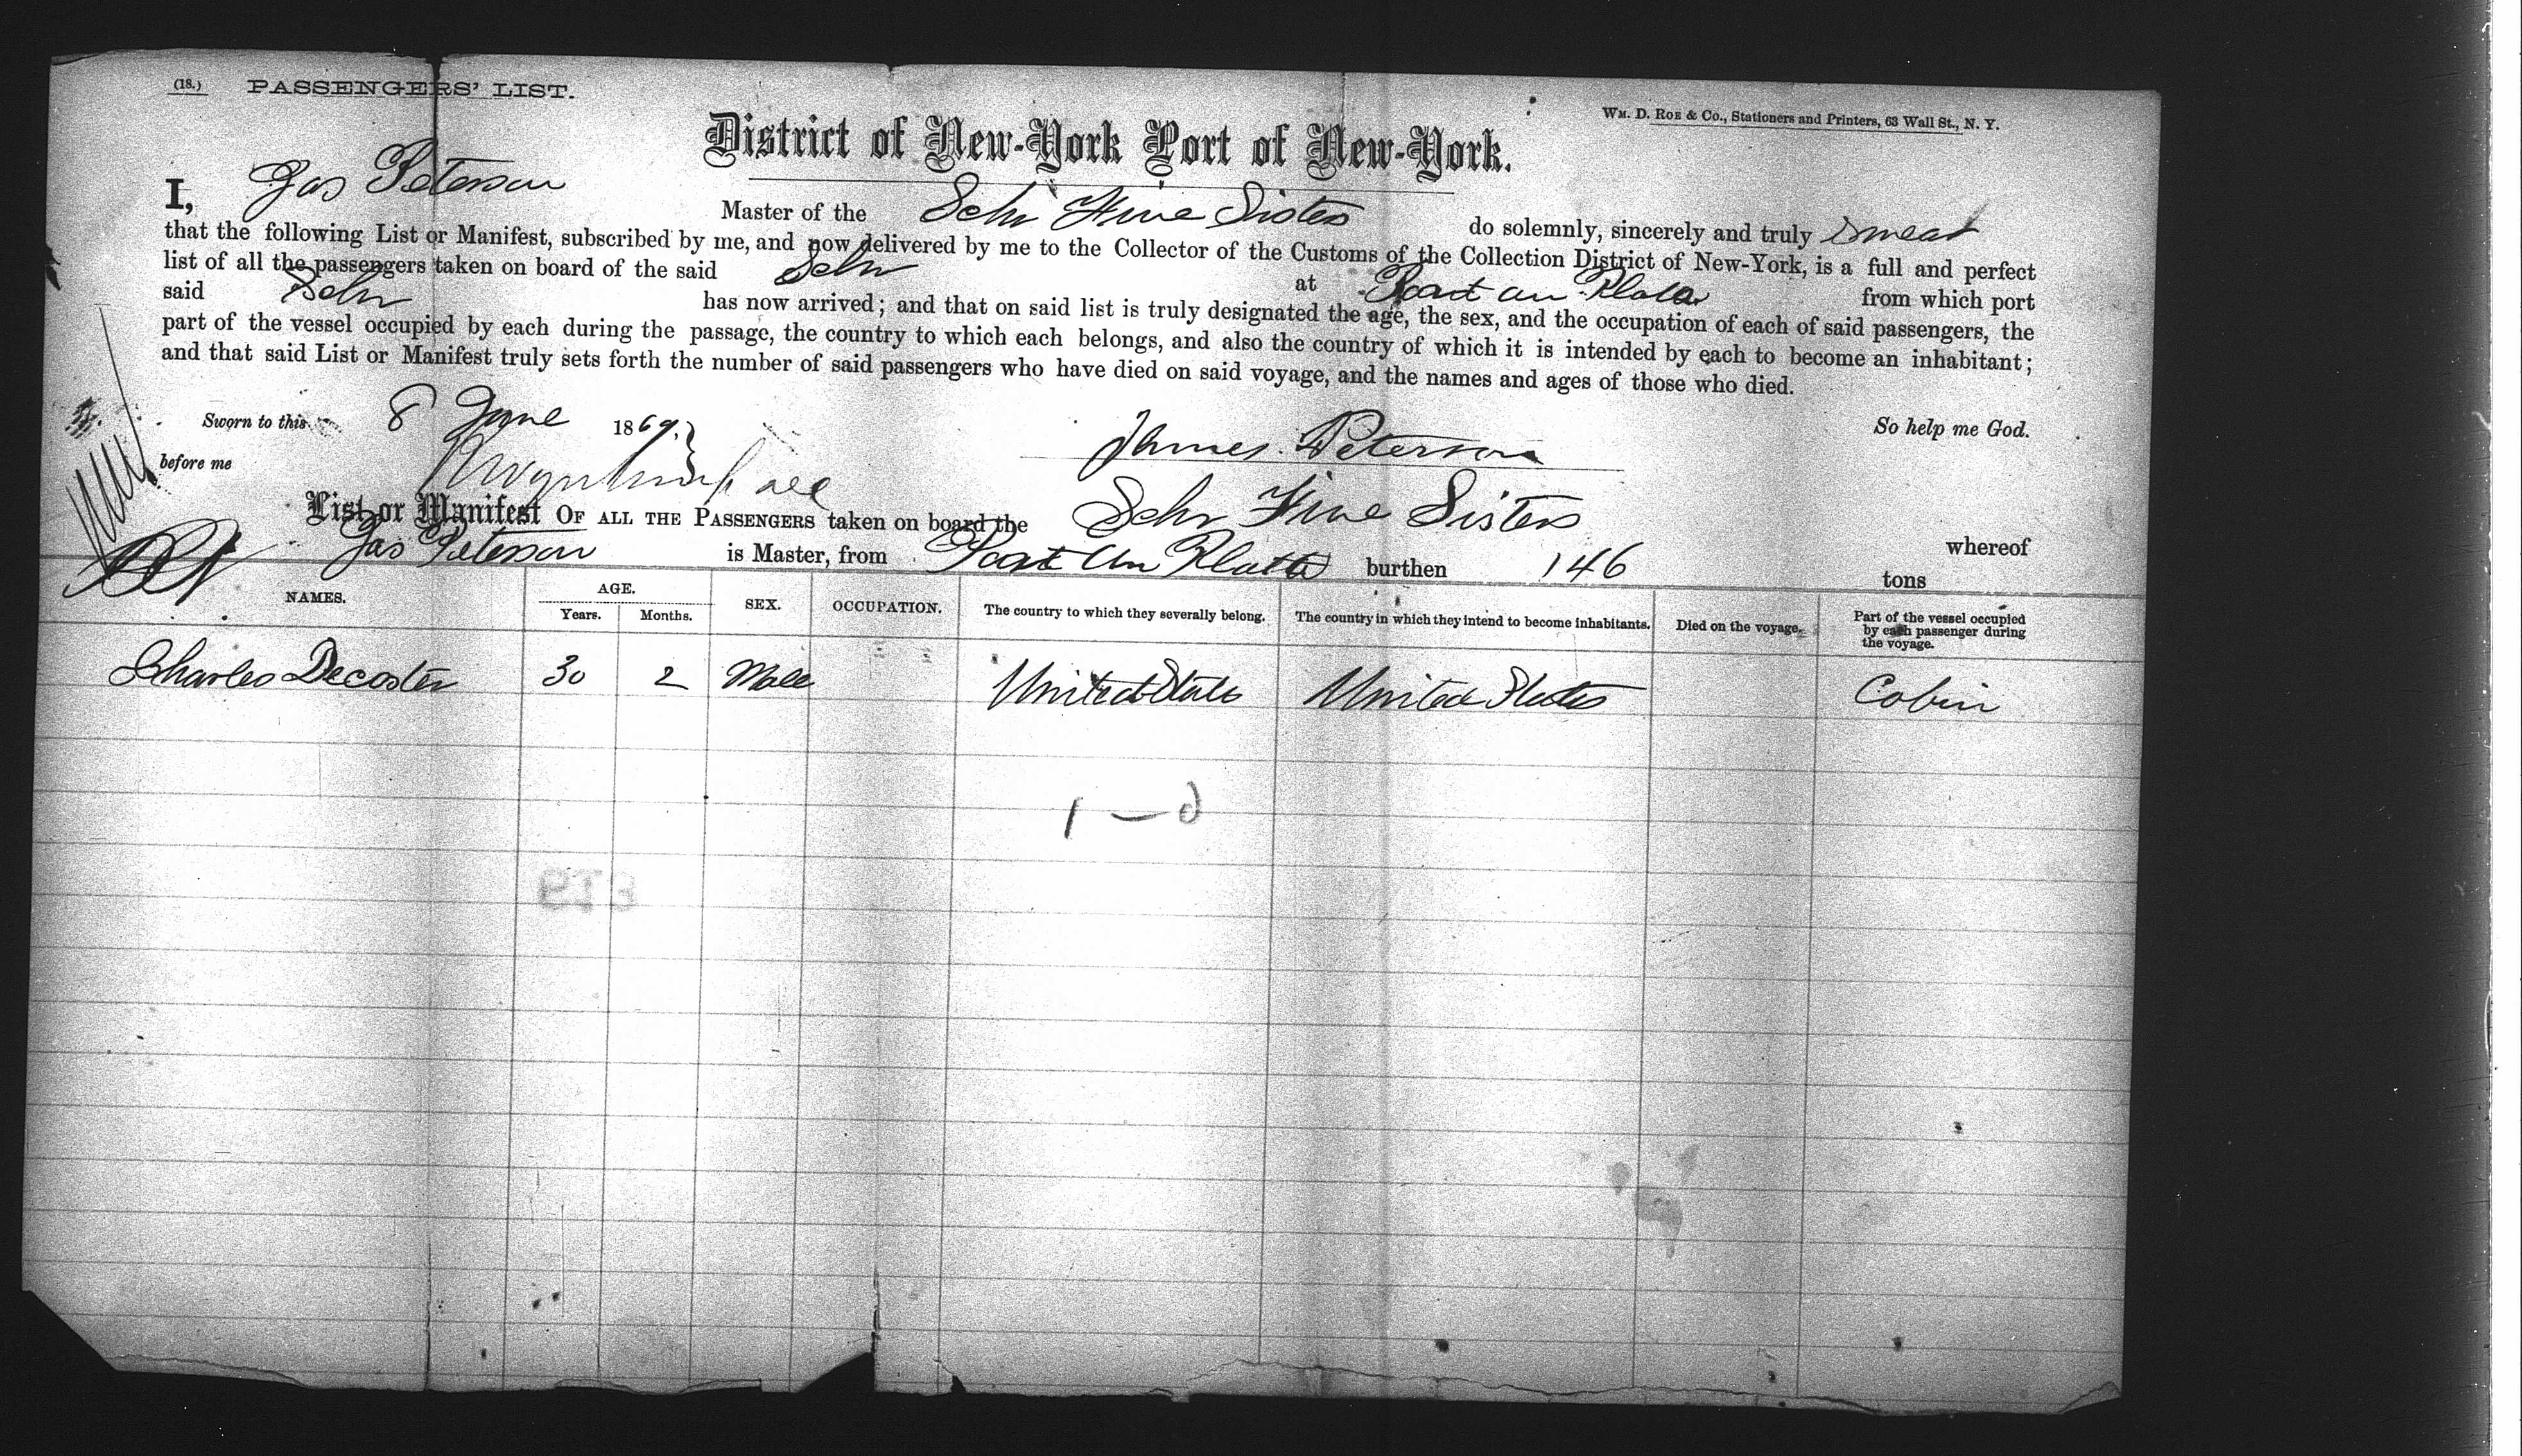 (18.) PASSENGERS' LIST.
WM. D. ROE & Co., Stationers and Printers, 63 Wall St., N. Y.
District of New-York Port of New-York.
I, Jas Peterson Master of the Schr Five Sisters do solemnly, sincerely and truly swear
that the following List or Manifest, subscribed by me, and now delivered by me to the Collector of the Customs of the Collection District of New-York, is a full and perfect
list of all the passengers taken on board of the said Schr at Port au Plata from which port
said Schr has now arrived; and that on said list is truly designated the age, the sex, and the occupation of each of said passengers, the
part of the vessel occupied by each during the passage, the country to which each belongs, and also the country of which it is intended by each to become an inhabitant;
and that said List or Manifest truly sets forth the number of said passengers who have died on said voyage, and the names and ages of those who died.
Sworn to this 8 June 1869. So help me God.
before me James Peterson
List or Manifest OF ALL THE PASSENGERS taken on board the Schr Five Sisters whereof
Jas Peterson is Master, from Port Au Platta burthen 146 tons
NAMES. AGE. Years. Months. SEX. OCCUPATION. The country to which they severally belong. The country in which they intend to become inhabitants. Died on the voyage. Part of the vessel occupied by each passenger during the voyage.
Charles Decoster 30 2 Male United States United States Cabin